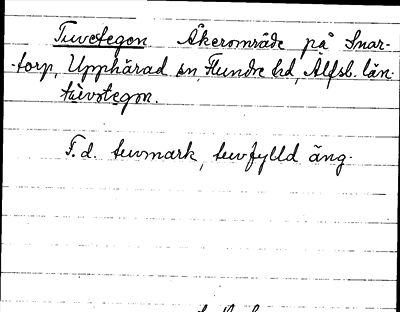 Tuvetegon Åkerområde på Snar-
-torp, Upphärad sn, Flundre hd, Älfsb. län.
tùvotegon.
F.d. tuvmark, tuvfylld äng.